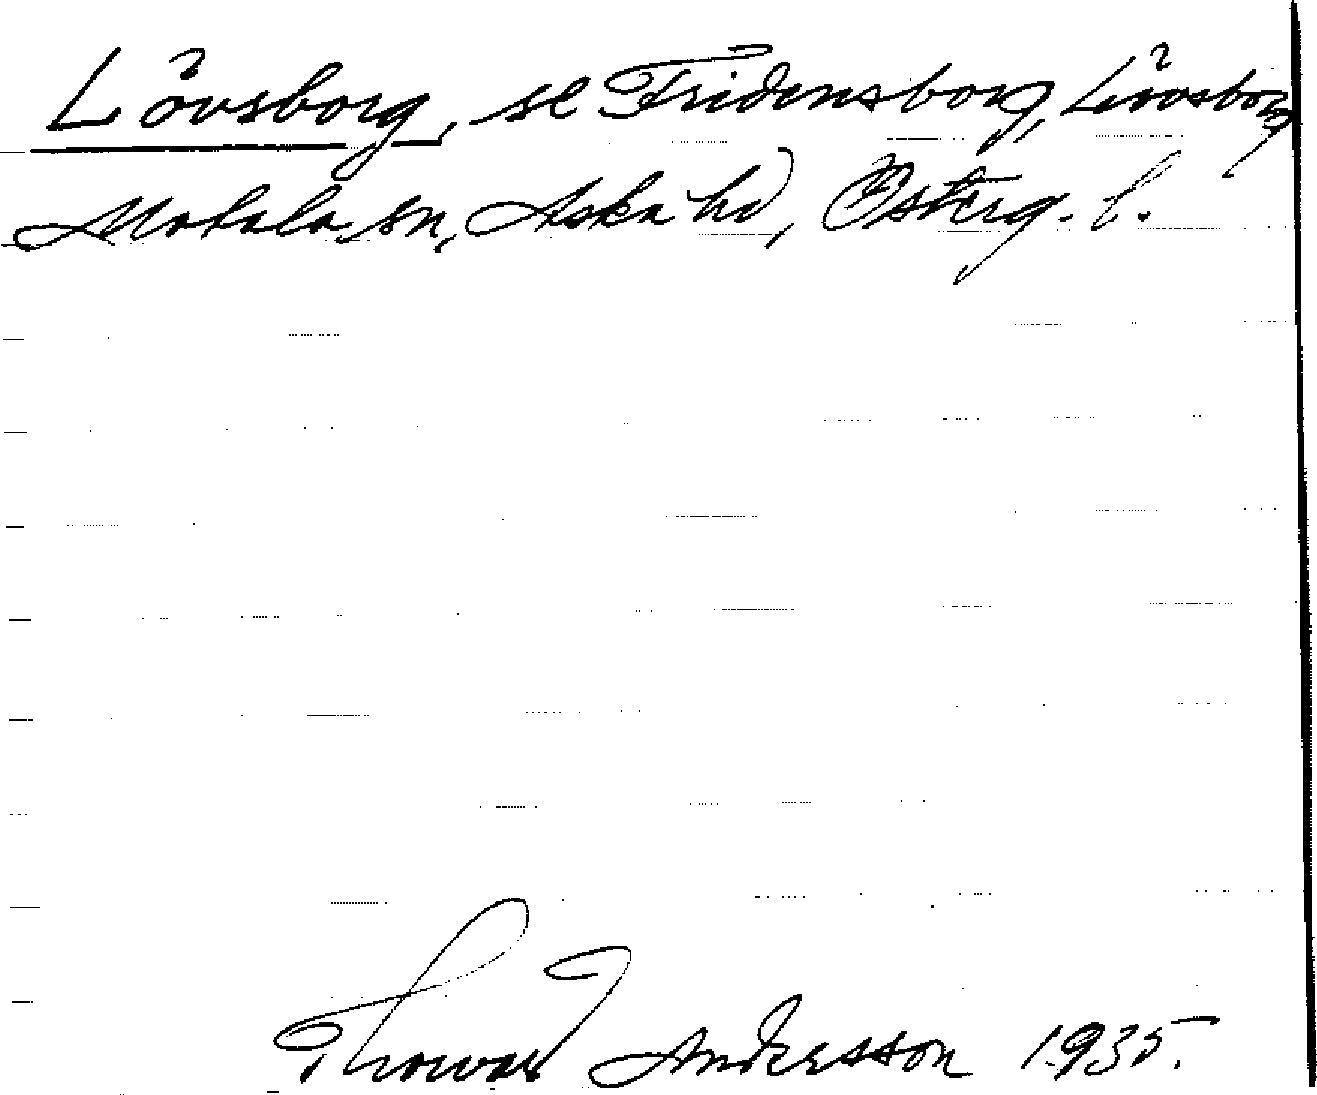 Lövsborg, se Fridensborg, Lövsborg
Motala sn, Aska hd, Österg. l.
Thorvald Andersson 1935.